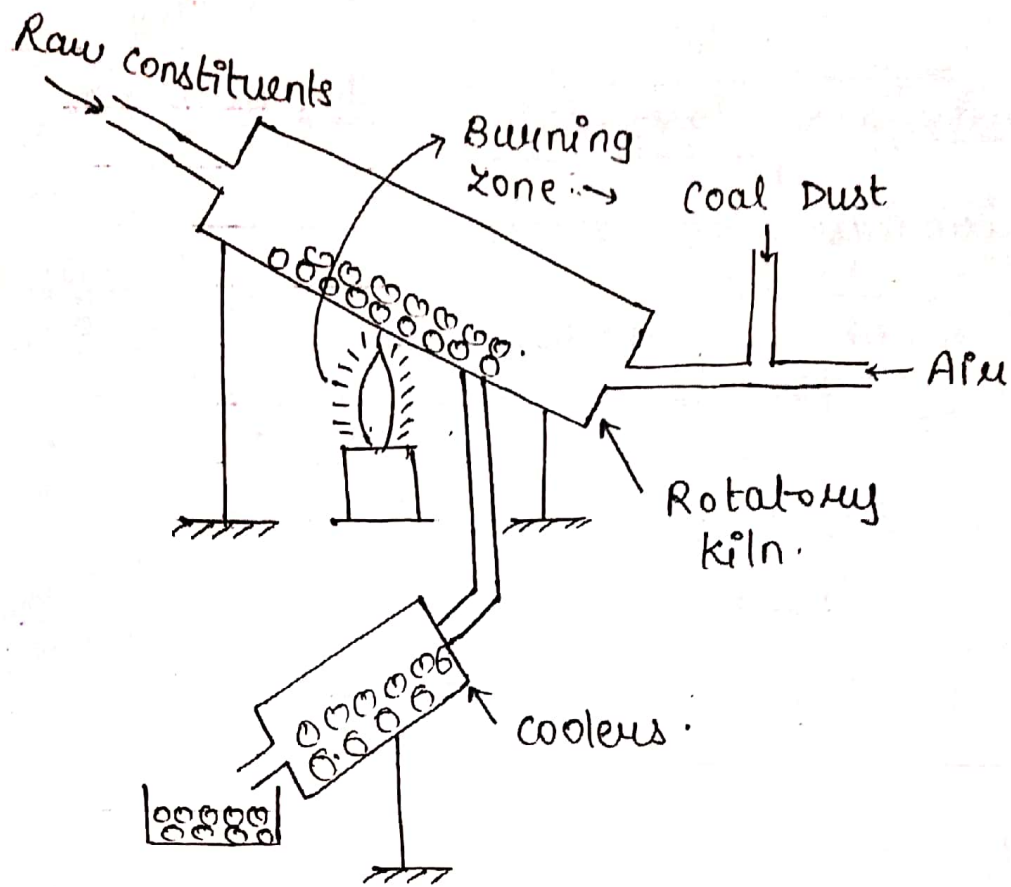 Raw constituents
Burning
Zone :→
Coal Dust
← Air
Rotatory
kiln.
Coolers.